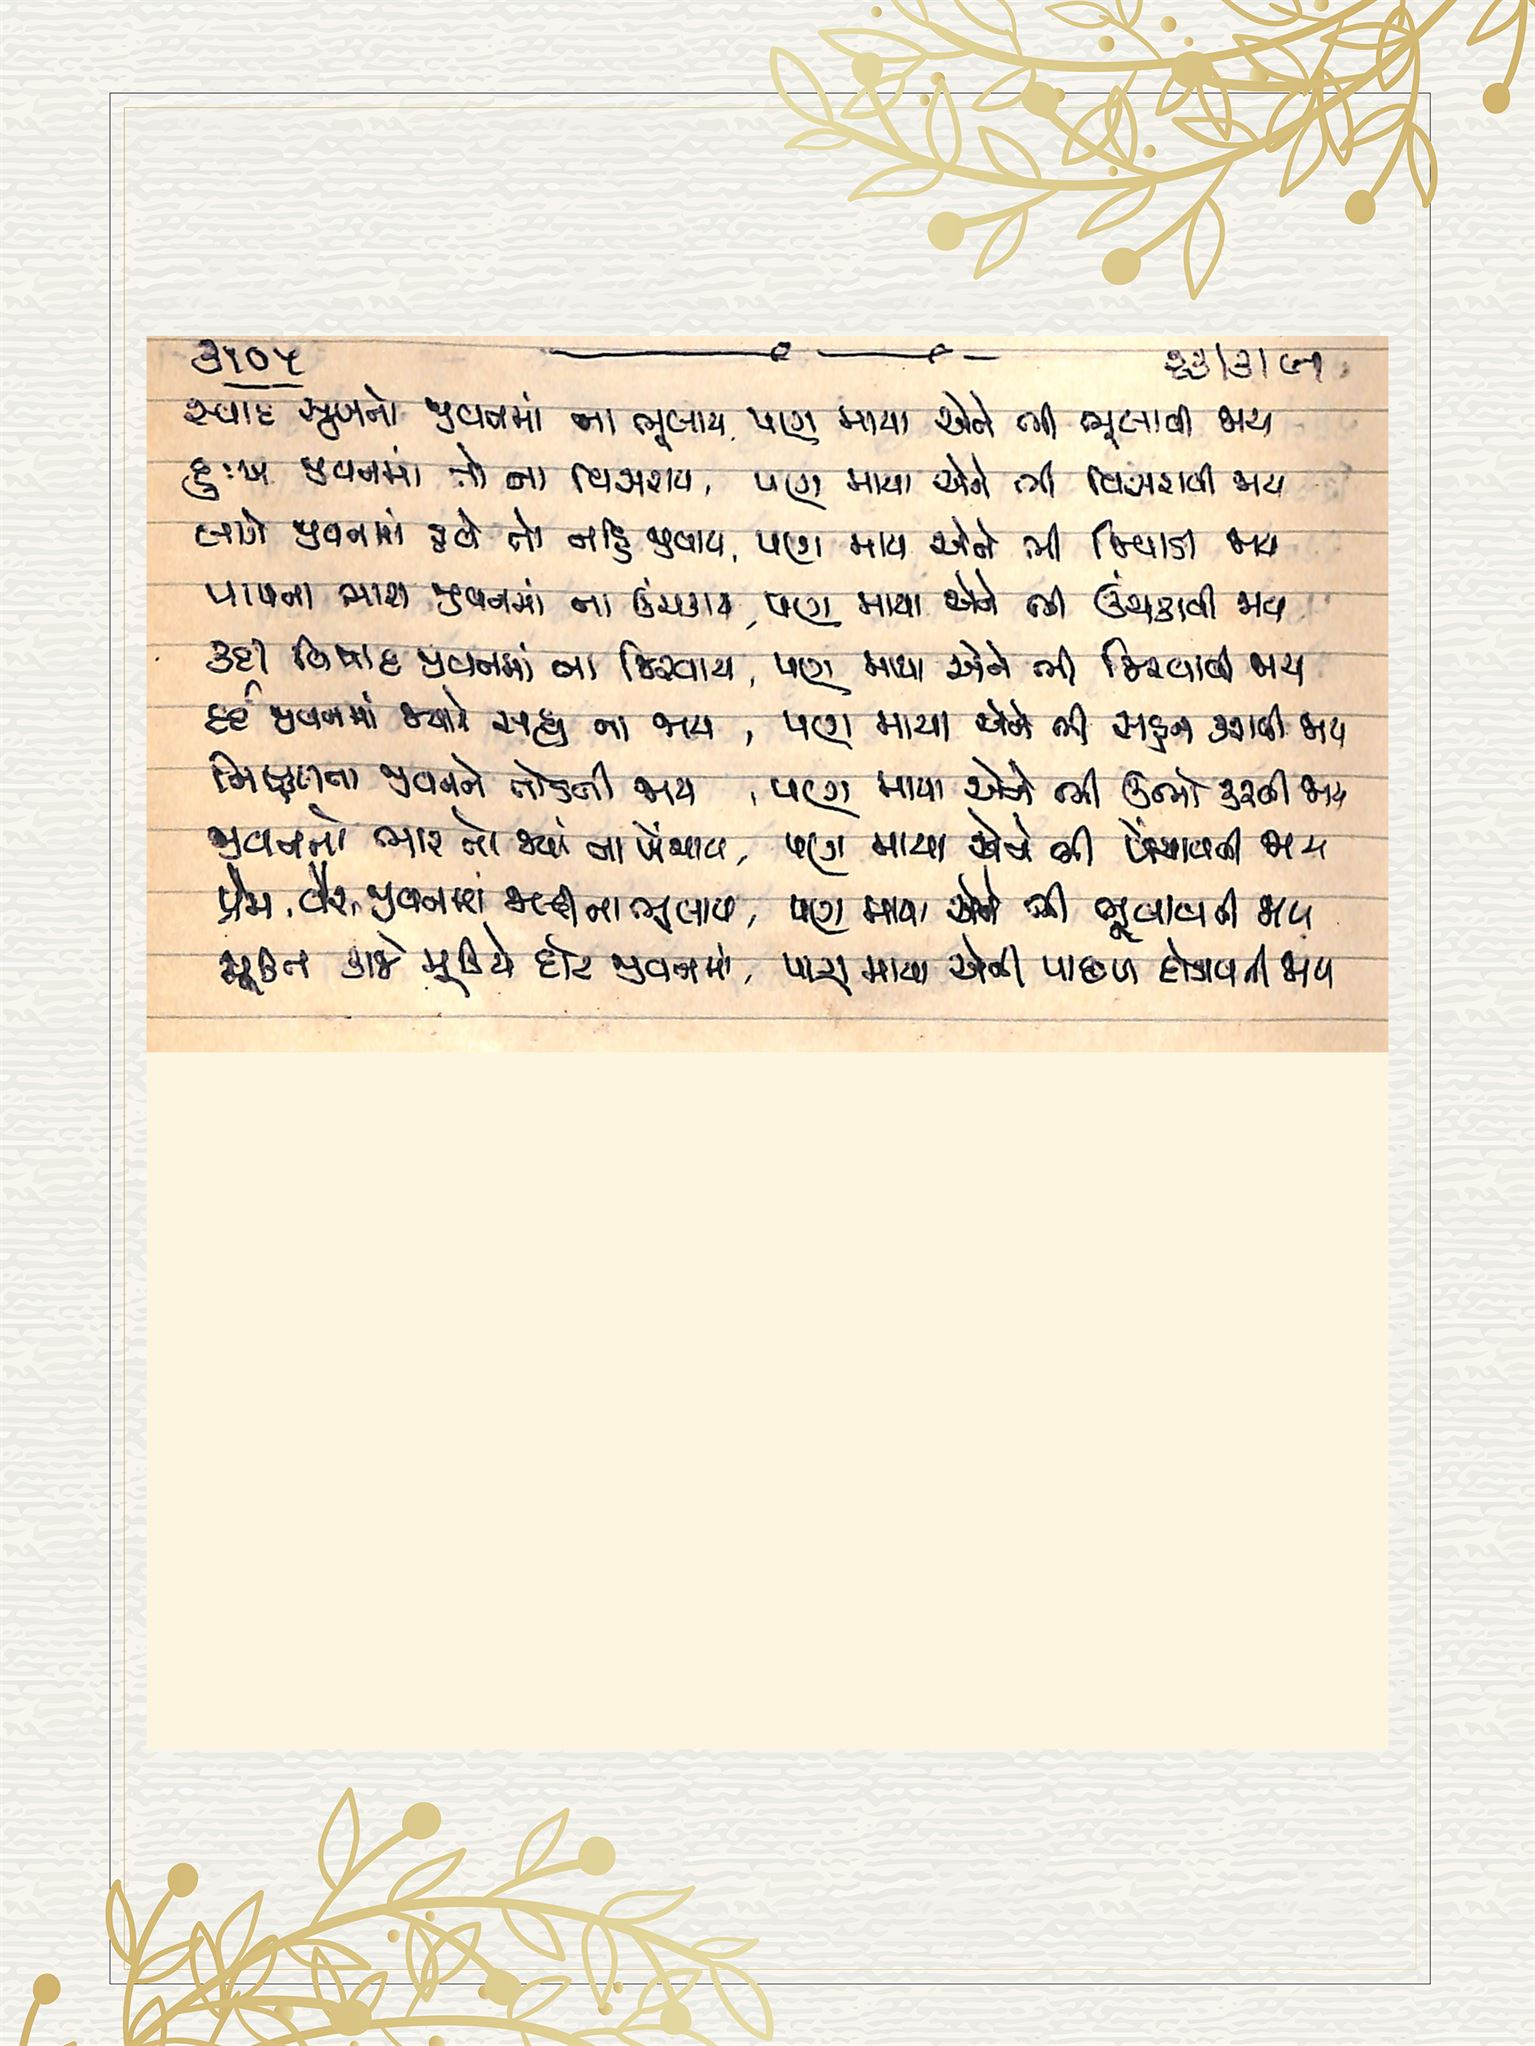 ૩૧૦૫ ૨૩/૩/૯૧
સ્વાદ સુખનો જીવનમાં ના ભૂલાય, પણ માયા એને ભી ભૂલાવી જાય
દુઃખ જીવનમાં તો ના વિસરાય, પણ માયા એને ભી વિસરાવી જાય
જીવનમાં તો નહિ જીવાય, પણ માયા એને ભી જિવાડી જાય
પાપના ભારા જીવનમાં ના ઉંચકાય, પણ માયા એને ભી ઉંચકાવી જાય
કદી વિષાદ જીવનમાં ના જિરવાય, પણ માયા એને ભી જિરવાવી જાય
દર્દ જીવનમાં જ્યારે સહ્યું ના જાય, પણ માયા એને ભી સહન કરાવી જાય
નિષ્ફળતા જીવનને તોડતી જાય, પણ માયા એને ભી ઉભો કરતી જાય
જીવનનો ભાર તો જ્યાં ના ખેંચાય, પણ માયા એને ભી ખેંચાવતી જાય
પ્રેમ, વૈર, જીવનમાં જલ્દી ના ભુલાય, પણ માયા એને ભી ભૂલાવતી જાય
મુક્તિ કાજે મૂકિયે દોટ જીવનમાં, પણ માયા એની પાછળ દોડાવતી જાય